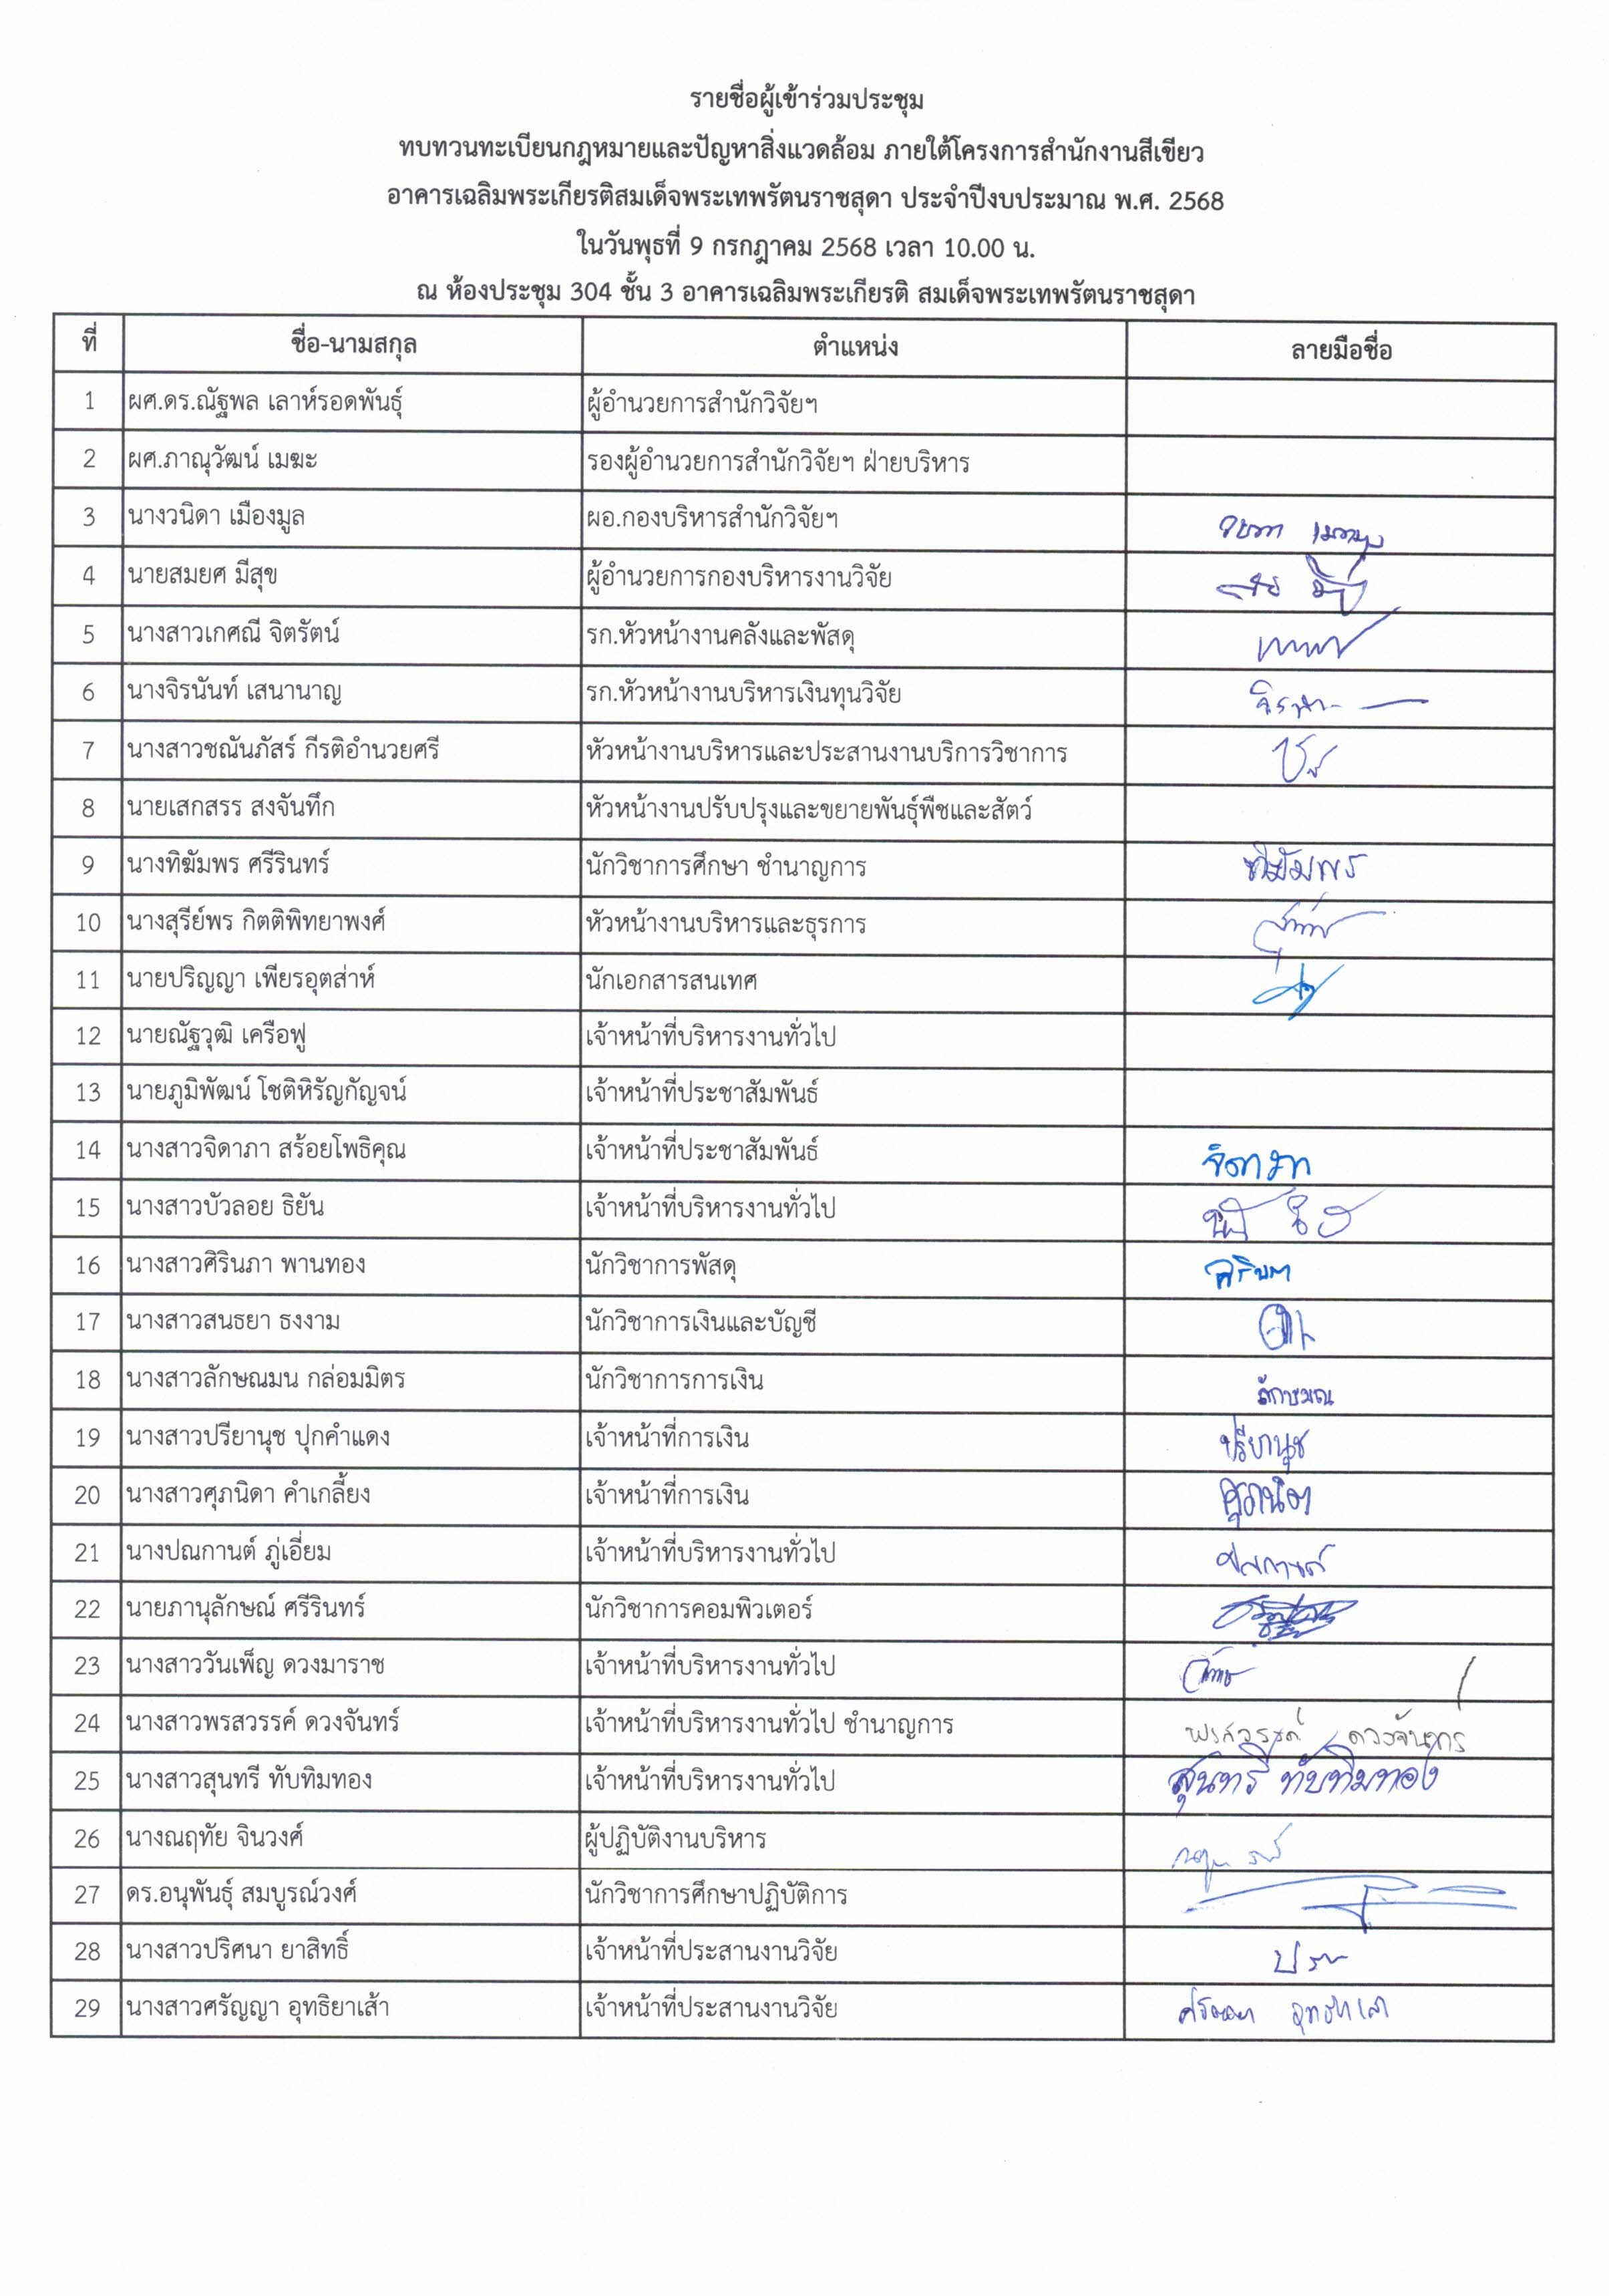 รายชื่อผู้เข้าร่วมประชุม
ทบทวนทะเบียนกฎหมายและปัญหาสิ่งแวดล้อม ภายใต้โครงการสำนักงานสีเขียว
อาคารเฉลิมพระเกียรติสมเด็จพระเทพรัตนราชสุดา ประจำปีงบประมาณ พ.ศ. 2568
ในวันพุธที่ 9 กรกฎาคม 2568 เวลา 10.00 น.
ณ ห้องประชุม 304 ชั้น 3 อาคารเฉลิมพระเกียรติ สมเด็จพระเทพรัตนราชสุดา
ที่ ชื่อ-นามสกุล ตำแหน่ง ลายมือชื่อ
1 ผศ.ดร.ณัฐพล เลาห์รอดพันธุ์ ผู้อำนวยการสำนักวิจัยฯ
2 ผศ.ภาณุวัฒน์ เมฆะ รองผู้อำนวยการสำนักวิจัยฯ ฝ่ายบริหาร
3 นางวนิดา เมืองมูล ผอ.กองบริหารสำนักวิจัยฯ
4 นายสมยศ มีสุข ผู้อำนวยการกองบริหารงานวิจัย
5 นางสาวเกศณี จิตรัตน์ รก.หัวหน้างานคลังและพัสดุ
6 นางจิรนันท์ เสนานาญ รก.หัวหน้างานบริหารเงินทุนวิจัย
7 นางสาวชณันภัสร์ กีรติอำนวยศรี หัวหน้างานบริหารและประสานงานบริการวิชาการ
8 นายเสกสรร สงจันทึก หัวหน้างานปรับปรุงและขยายพันธุ์พืชและสัตว์
9 นางทิฆัมพร ศรีรินทร์ นักวิชาการศึกษา ชำนาญการ ทิฆัมพร
10 นางสุรีย์พร กิตติพิทยาพงศ์ หัวหน้างานบริหารและธุรการ
11 นายปริญญา เพียรอุตส่าห์ นักเอกสารสนเทศ
12 นายณัฐวุฒิ เครือฟู เจ้าหน้าที่บริหารงานทั่วไป
13 นายภูมิพัฒน์ โชติหิรัญกัญจน์ เจ้าหน้าที่ประชาสัมพันธ์
14 นางสาวจิดาภา สร้อยโพธิคุณ เจ้าหน้าที่ประชาสัมพันธ์ จิดาภา
15 นางสาวบัวลอย ธิยัน เจ้าหน้าที่บริหารงานทั่วไป
16 นางสาวศิรินภา พานทอง นักวิชาการพัสดุ ศิรินภา
17 นางสาวสนธยา ธงงาม นักวิชาการเงินและบัญชี
18 นางสาวลักษณมน กล่อมมิตร นักวิชาการการเงิน
19 นางสาวปรียานุช ปุกคำแดง เจ้าหน้าที่การเงิน ปรียานุช
20 นางสาวศุภนิดา คำเกลี้ยง เจ้าหน้าที่การเงิน ศุภนิดา
21 นางปณกานต์ ภู่เอี่ยม เจ้าหน้าที่บริหารงานทั่วไป ปณกานต์
22 นายภานุลักษณ์ ศรีรินทร์ นักวิชาการคอมพิวเตอร์
23 นางสาววันเพ็ญ ดวงมาราช เจ้าหน้าที่บริหารงานทั่วไป
24 นางสาวพรสวรรค์ ดวงจันทร์ เจ้าหน้าที่บริหารงานทั่วไป ชำนาญการ พรสวรรค์ ดวงจันทร์
25 นางสาวสุนทรี ทับทิมทอง เจ้าหน้าที่บริหารงานทั่วไป สุนทรี ทับทิมทอง
26 นางณฤทัย จินวงศ์ ผู้ปฏิบัติงานบริหาร
27 ดร.อนุพันธุ์ สมบูรณ์วงศ์ นักวิชาการศึกษาปฏิบัติการ
28 นางสาวปริศนา ยาสิทธิ์ เจ้าหน้าที่ประสานงานวิจัย
29 นางสาวศรัญญา อุทธิยาเส้า เจ้าหน้าที่ประสานงานวิจัย